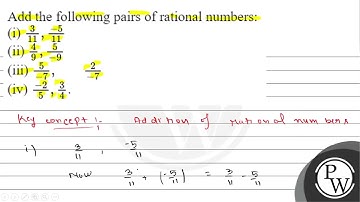 Add the following pairs of rational numbers:
(i) 3/11, -5/11
(ii) 4/9, 5/-9
(iii) 5/-7, 2/-7
(iv) -2/5, 3/4.
Key concept :- Addition of rational numbers
i) 3/11 , -5/11
Now 3/11 + (-5/11) = 3/11 - 5/11
PW